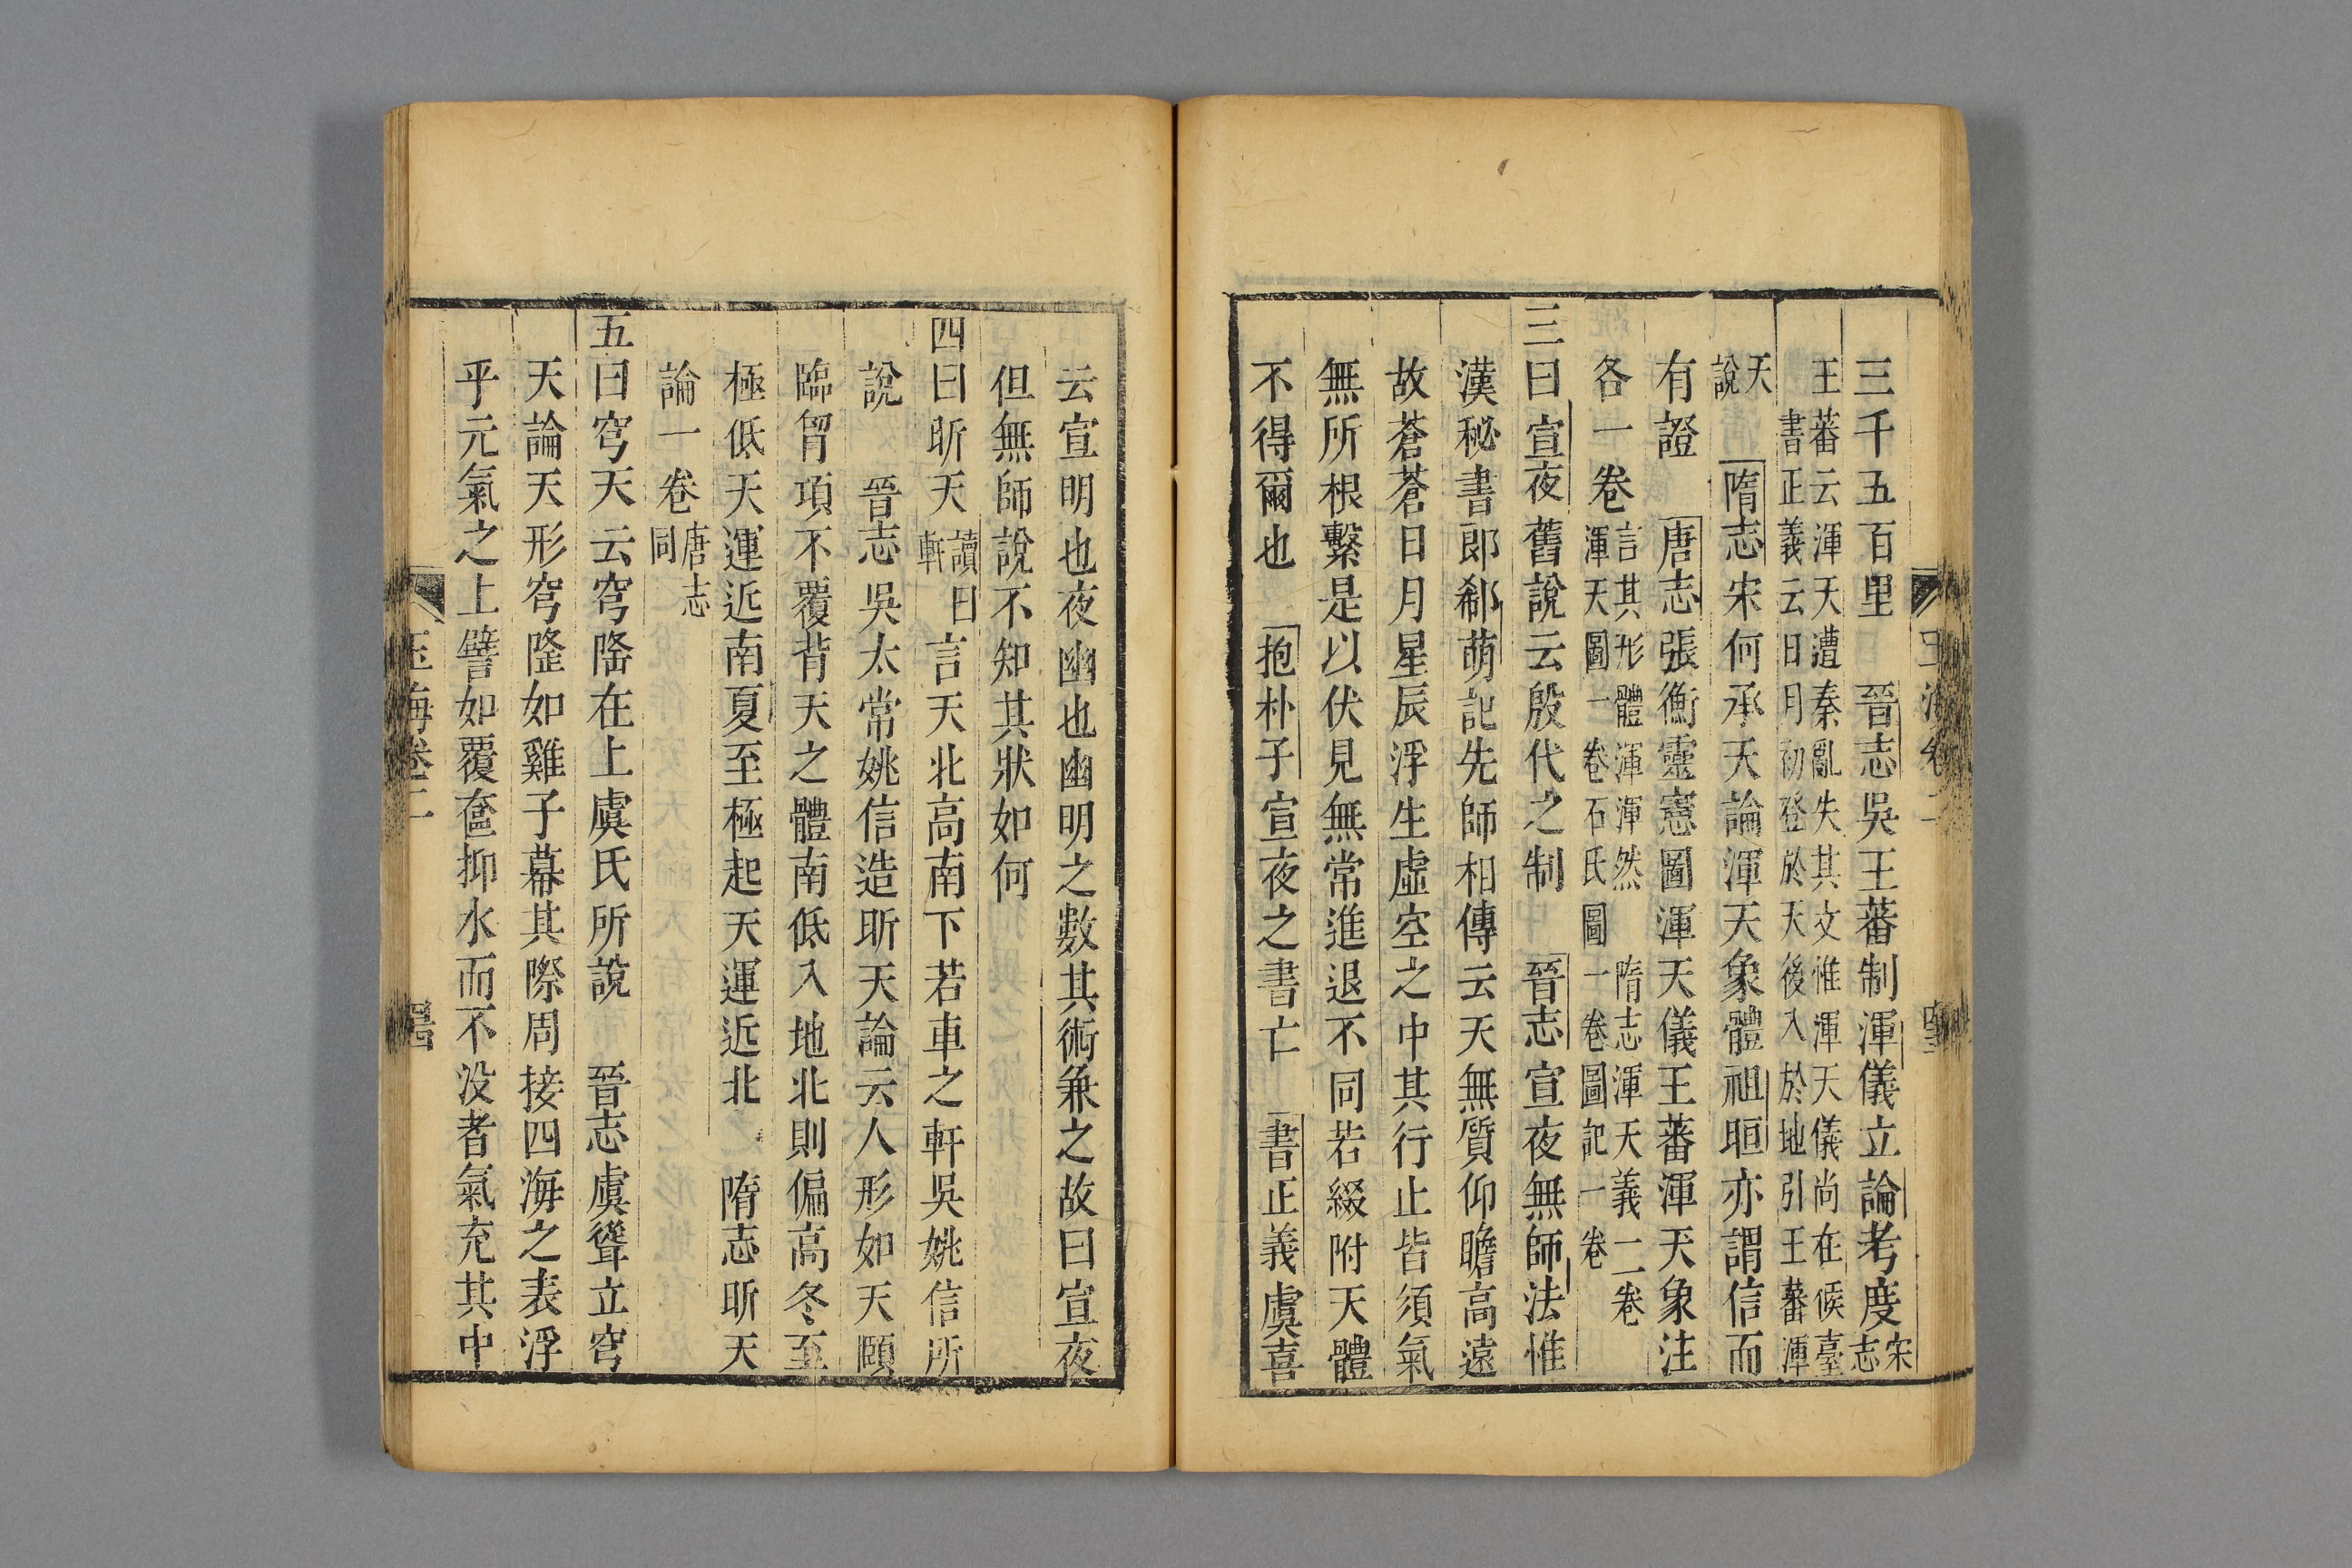 三千五百里 晉志吳王蕃制渾儀立論考度宋志
王蕃云渾天遭秦亂失其文惟渾天儀尚在候臺
書正義云日月初登於天後入於地引王蕃渾
天說
隋志宋何承天論渾天象體祖暅亦謂信而
有證 唐志張衡靈憲圖渾天儀王蕃渾天象注
各一卷言其形體渾渾然 隋志渾天義二卷渾天圖一卷石氏圖一卷圖記一卷
三曰宣夜舊說云殷代之制 晉志宣夜無師法惟
漢秘書郎郗萌記先師相傳云天無質仰瞻高遠
故蒼蒼日月星辰浮生虛空之中其行止皆須氣
無所根繫是以伏見無常進退不同若綴附天體
不得爾也 抱朴子宣夜之書亡 書正義虞喜
云宣明也夜幽也幽明之數其術兼之故曰宣夜
但無師說不知其狀如何
四曰昕天讀曰軒言天北高南下若車之軒吳姚信所
說 晉志吳太常姚信造昕天論云人形如天頤
臨胷項不覆背天之體南低入地北則偏高冬至
極低天運近南夏至極起天運近北 隋志昕天
論一卷唐志同
五曰穹天云穹隆在上虞氏所說 晉志虞聳立穹
天論天形穹隆如雞子幕其際周接四海之表浮
乎元氣之上譬如覆奩抑水而不没者氣充其中
玉海卷二